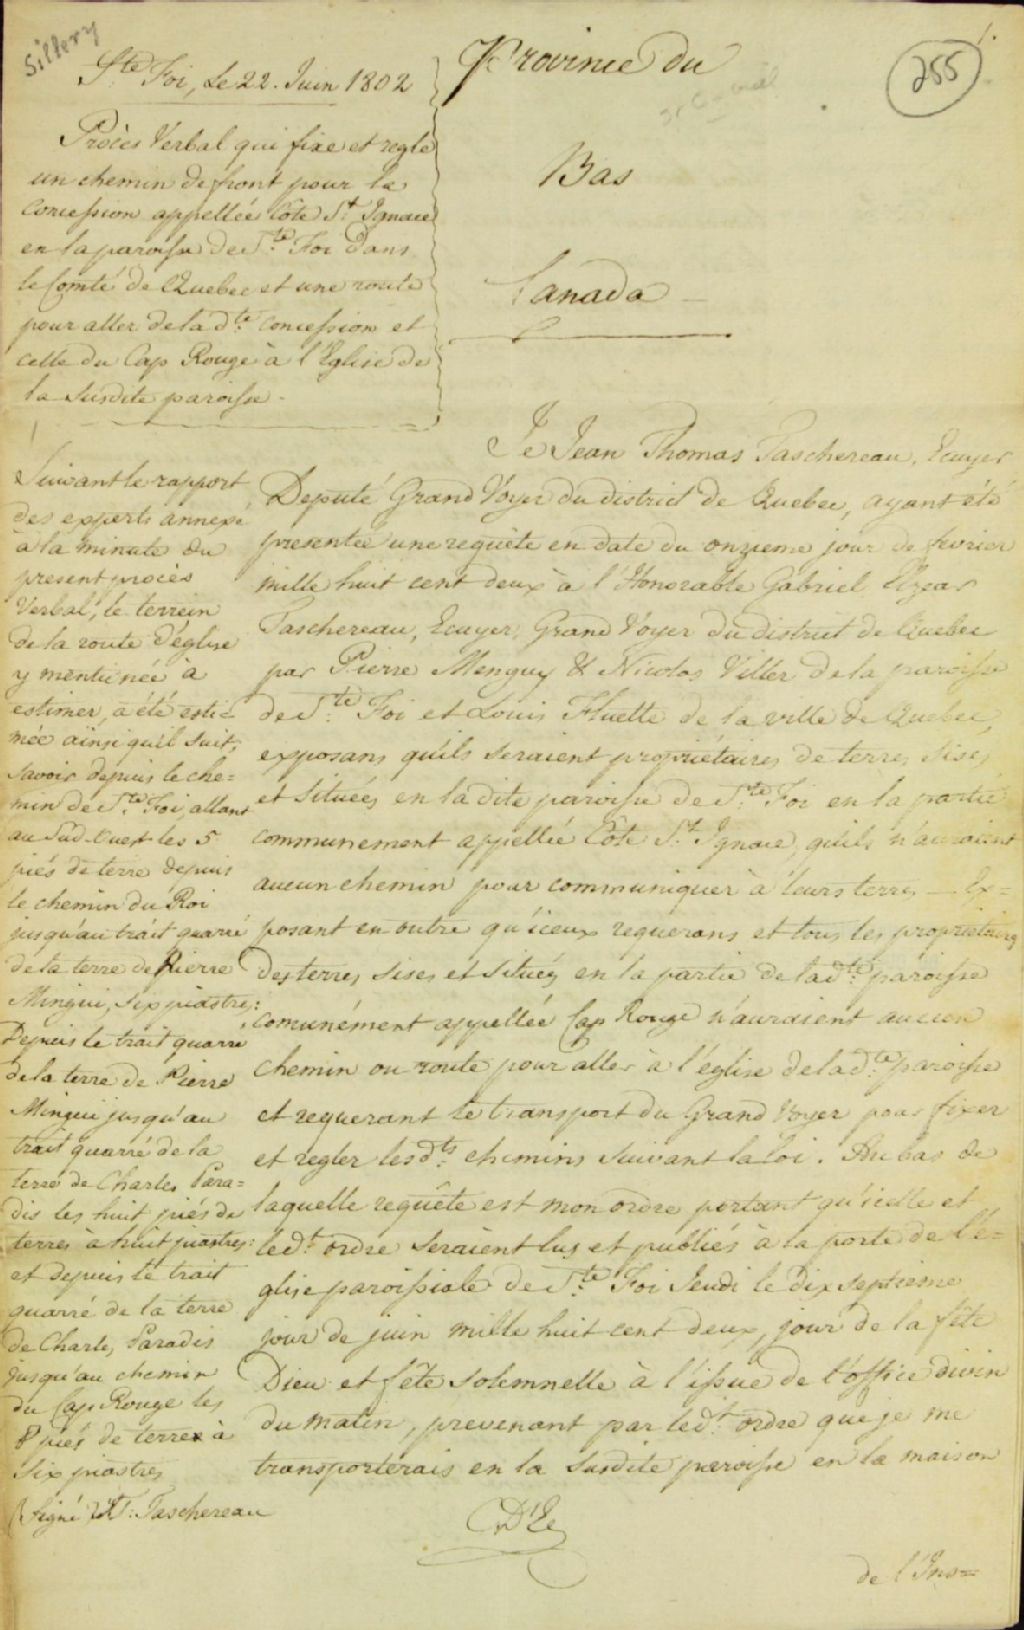 Sillery
1.
255
Ste Foi, Le 22. Juin 1802
Procès Verbal qui fixe et regle
un chemin de front pour la
Concession appellée Côte St. Ignace
en la paroisse de Ste. Foi dans
le Comté de Quebec et une route
pour aller de la dte. concession et
celle du Cap Rouge à l'Eglise de
la Susdite paroisse.
Province du
Bas
Canada
Suivant le rapport
des experts annexé
à la minute du
present procès
Verbal, le terrein
de la route d'église
y mentionée à
estimer, a été esti=
mée ainsi qu'il suit,
Savoir depuis le che=
min de Ste. Foi, allant
au Sud-Ouest les 5
piés de terre depuis
le chemin du Roi
jusqu'au trait quarré
de la terre de Pierre
Mingui, six piastres:
Depuis le trait quarré
de la terre de Pierre
Mingui jusqu'au
trait quarré de la
terre de Charles Para=
dis les huit piés de
terres à huit piastres:
et depuis le trait
quarré de la terre
de Charles Paradis
jusqu'au chemin
du Cap Rouge les
8 piés de terre à
six piastres
(Signé) J.T: Taschereau
Je Jean Thomas Taschereau, Ecuyer
Deputé Grand Voyer du district de Quebec, ayant été
presentée une requête en date du onzieme jour de fevrier
mille huit cent deux à l'Honorable Gabriel Elzear
Taschereau, Ecuyer, Grand Voyer du district de Quebec
par Pierre Menguy & Nicolas Viller de la paroisse
de Ste. Foi et Louis Fluette de la ville de Quebec,
exposans qu'ils seraient propriétaires de terres sises
et situées en la dite paroisse de Ste. Foi en la partie
communement appellée Côte St. Ignace, qu'ils n'auraient
aucun chemin pour communiquer à leurs terres — Ex=
posant en outre qu'iceux requerans et tous les propriétaires
des terres sises et situées en la partie de la dte. paroisse
comunément appellée Cap Rouge n'auraient aucun
chemin ou route pour aller à l'église de la dte. paroisse
et requerant le transport du Grand Voyer pour fixer
et regler lesdts. chemins suivant la Loi. Au bas de
laquelle requête est mon ordre portant qu'icelle et
ledt. ordre seraient lus et publiés à la porte de l'é=
glise paroissiale de Ste. Foi Jeudi le dix septieme
jour de juin mille huit cent deux, jour de la fête
Dieu et fête solemnelle à l'issue de l'office divin
du matin, prevenant par ledt. ordre que je me
transporterais en la susdite paroisse en la maison
de l'Ins=